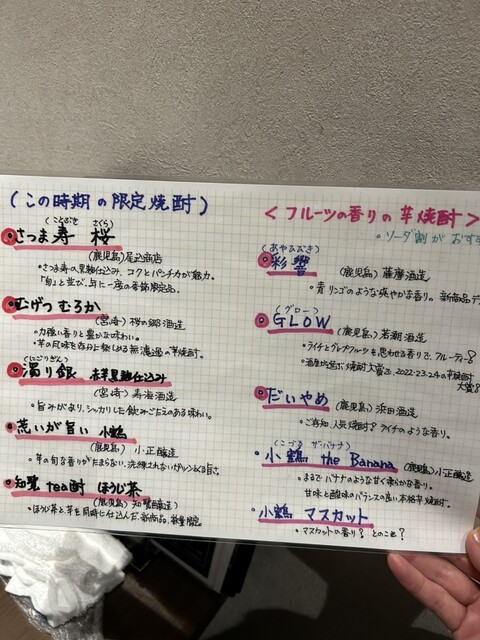 (この時期の限定焼酎)
(ことぶき さくら)
さつま寿 桜
(鹿児島) 尾込商店
・さつま寿の黒麹仕込み、コクとパンチ力が魅力。
「旬」と並び、年に一度の季節限定品。
むげつ むろか
(宮崎) 桜の郷酒造
・力強い香りと豊かな味わい。
・芋の風味を存分に楽しめる無濾過の芋焼酎。
(にごりぎん)
濁り銀 赤芋黒麹仕込み
(宮崎) 寿海酒造
・旨みがあり、シッカリした飲みごたえのある味わい。
荒いが旨い 小鶴
(鹿児島) 小正醸造
・芋の旬な香りがたまらない、洗練されないガツンとくる旨さ。
知覧 tea酎 ほうじ茶
(鹿児島) 知覧醸造
・ほうじ茶と芋を同時に仕込んだ、新商品、数量限定。
<フルーツの香りの芋焼酎>
・ソーダ割がおすす
(あやひびき)
彩響
(鹿児島) 薩摩酒造
・青リンゴのような爽やかな香り。新商品デ
(グロー)
GLOW
(鹿児島) 若潮酒造
・ライチとグレプフルーツを思わせる香りで、フルーティー?
・酒屋が選ぶ焼酎大賞で、2022・23・24の芋焼酎
大賞!
だいやめ
(鹿児島) 浜田酒造
・ご存知、人気焼酎! ライチのような香り。
(こづる ザ・バナナ)
小鶴 the Banana
(鹿児島) 小正醸造
・まるでバナナのような甘く柔らかな香り。
甘味と酸味のバランスの良い本格芋焼酎。
小鶴 マスカット
・マスカットの香り? とのこと?